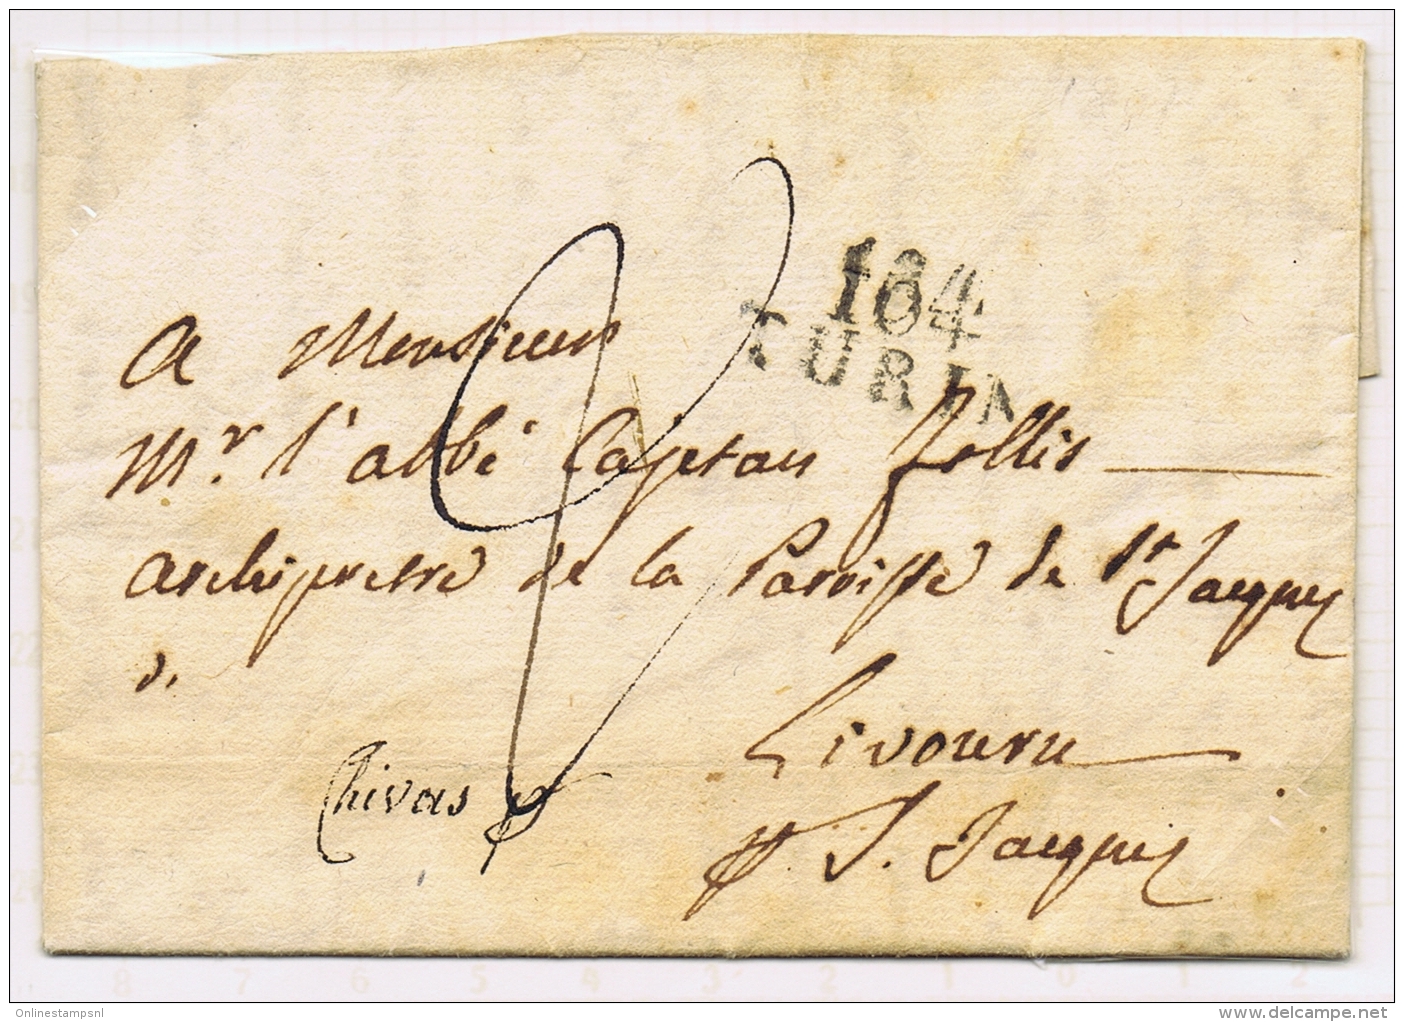 104
TURIN
A Monsieur
Mr. l'abbé Cajetan Jollis
archipretre de la Paroisse de St Jacques
Livourn
Chivas
p. S. Jacques
Onlinestampsnl
www.delcampe.net